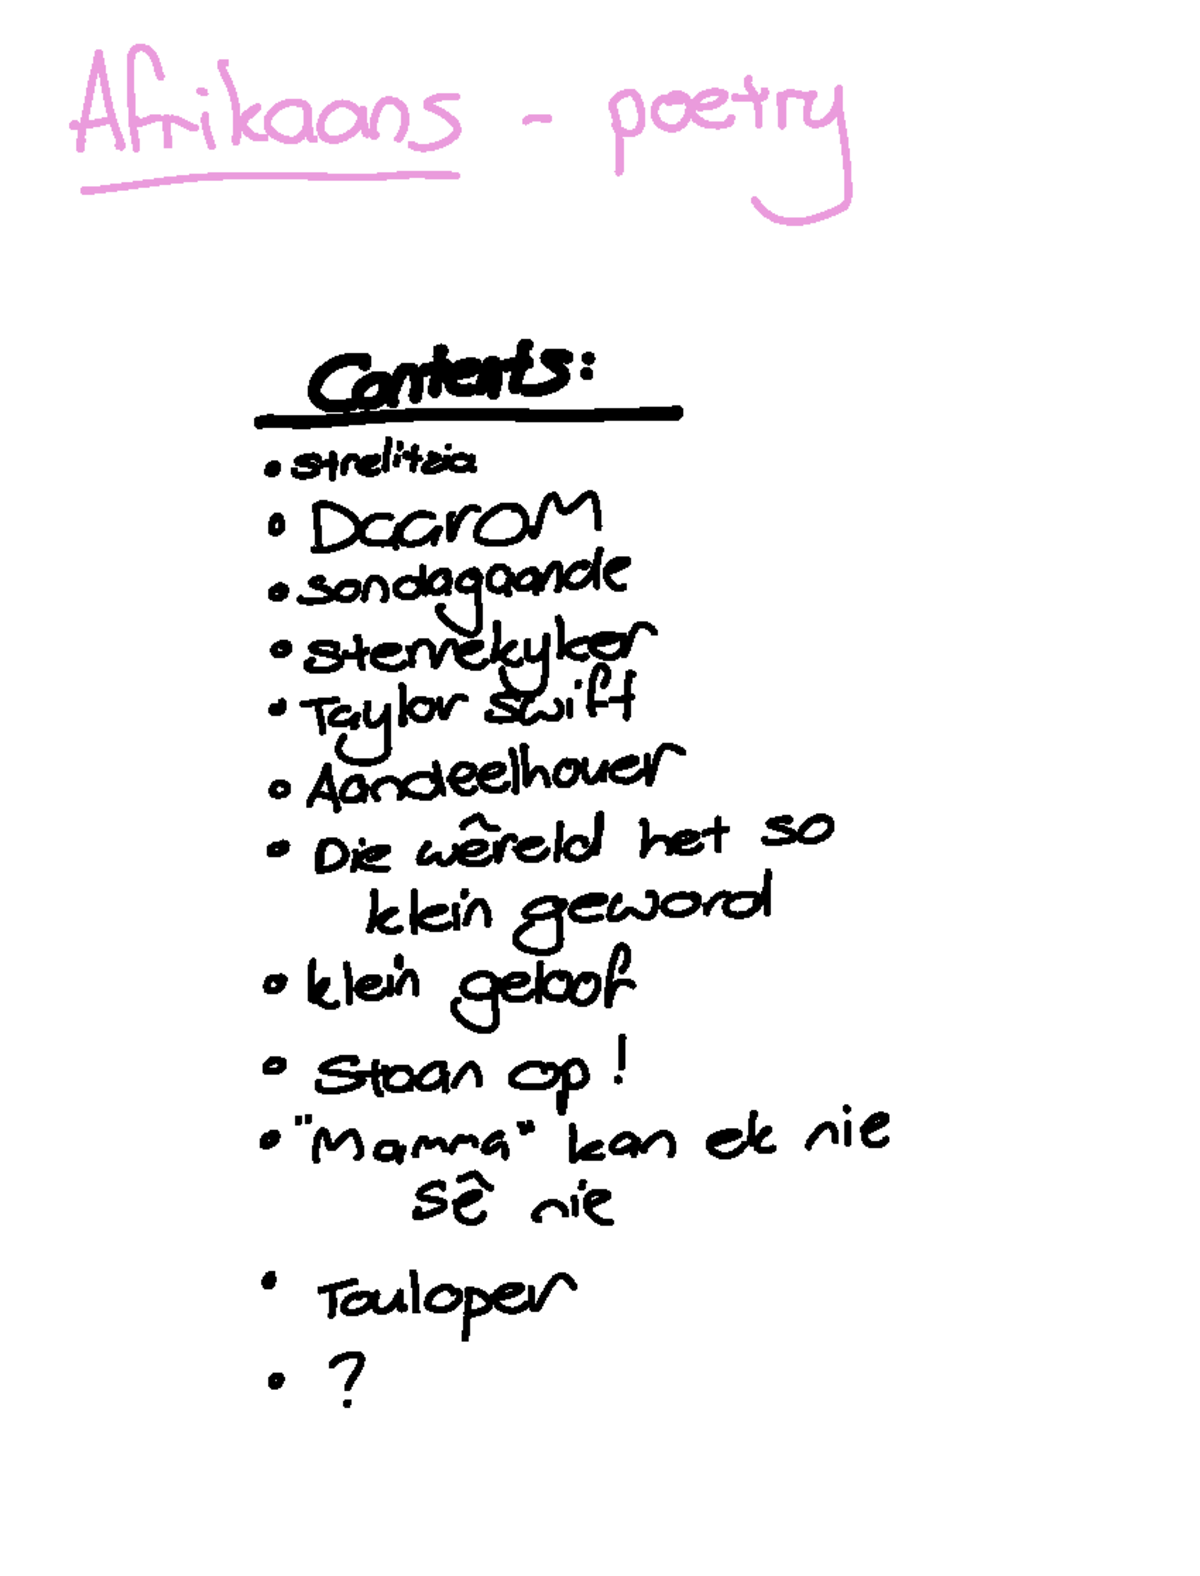 Afrikaans - poetry
Contents:
• strelitzia
• DaaroM
• sondagaande
• sterrekyker
• Taylor swift
• Aandeelhouer
• Die wêreld het so
klein geword
• klein geloof
• Staan op!
• "Mamma" kan ek nie
sê nie
• Touloper
• ?